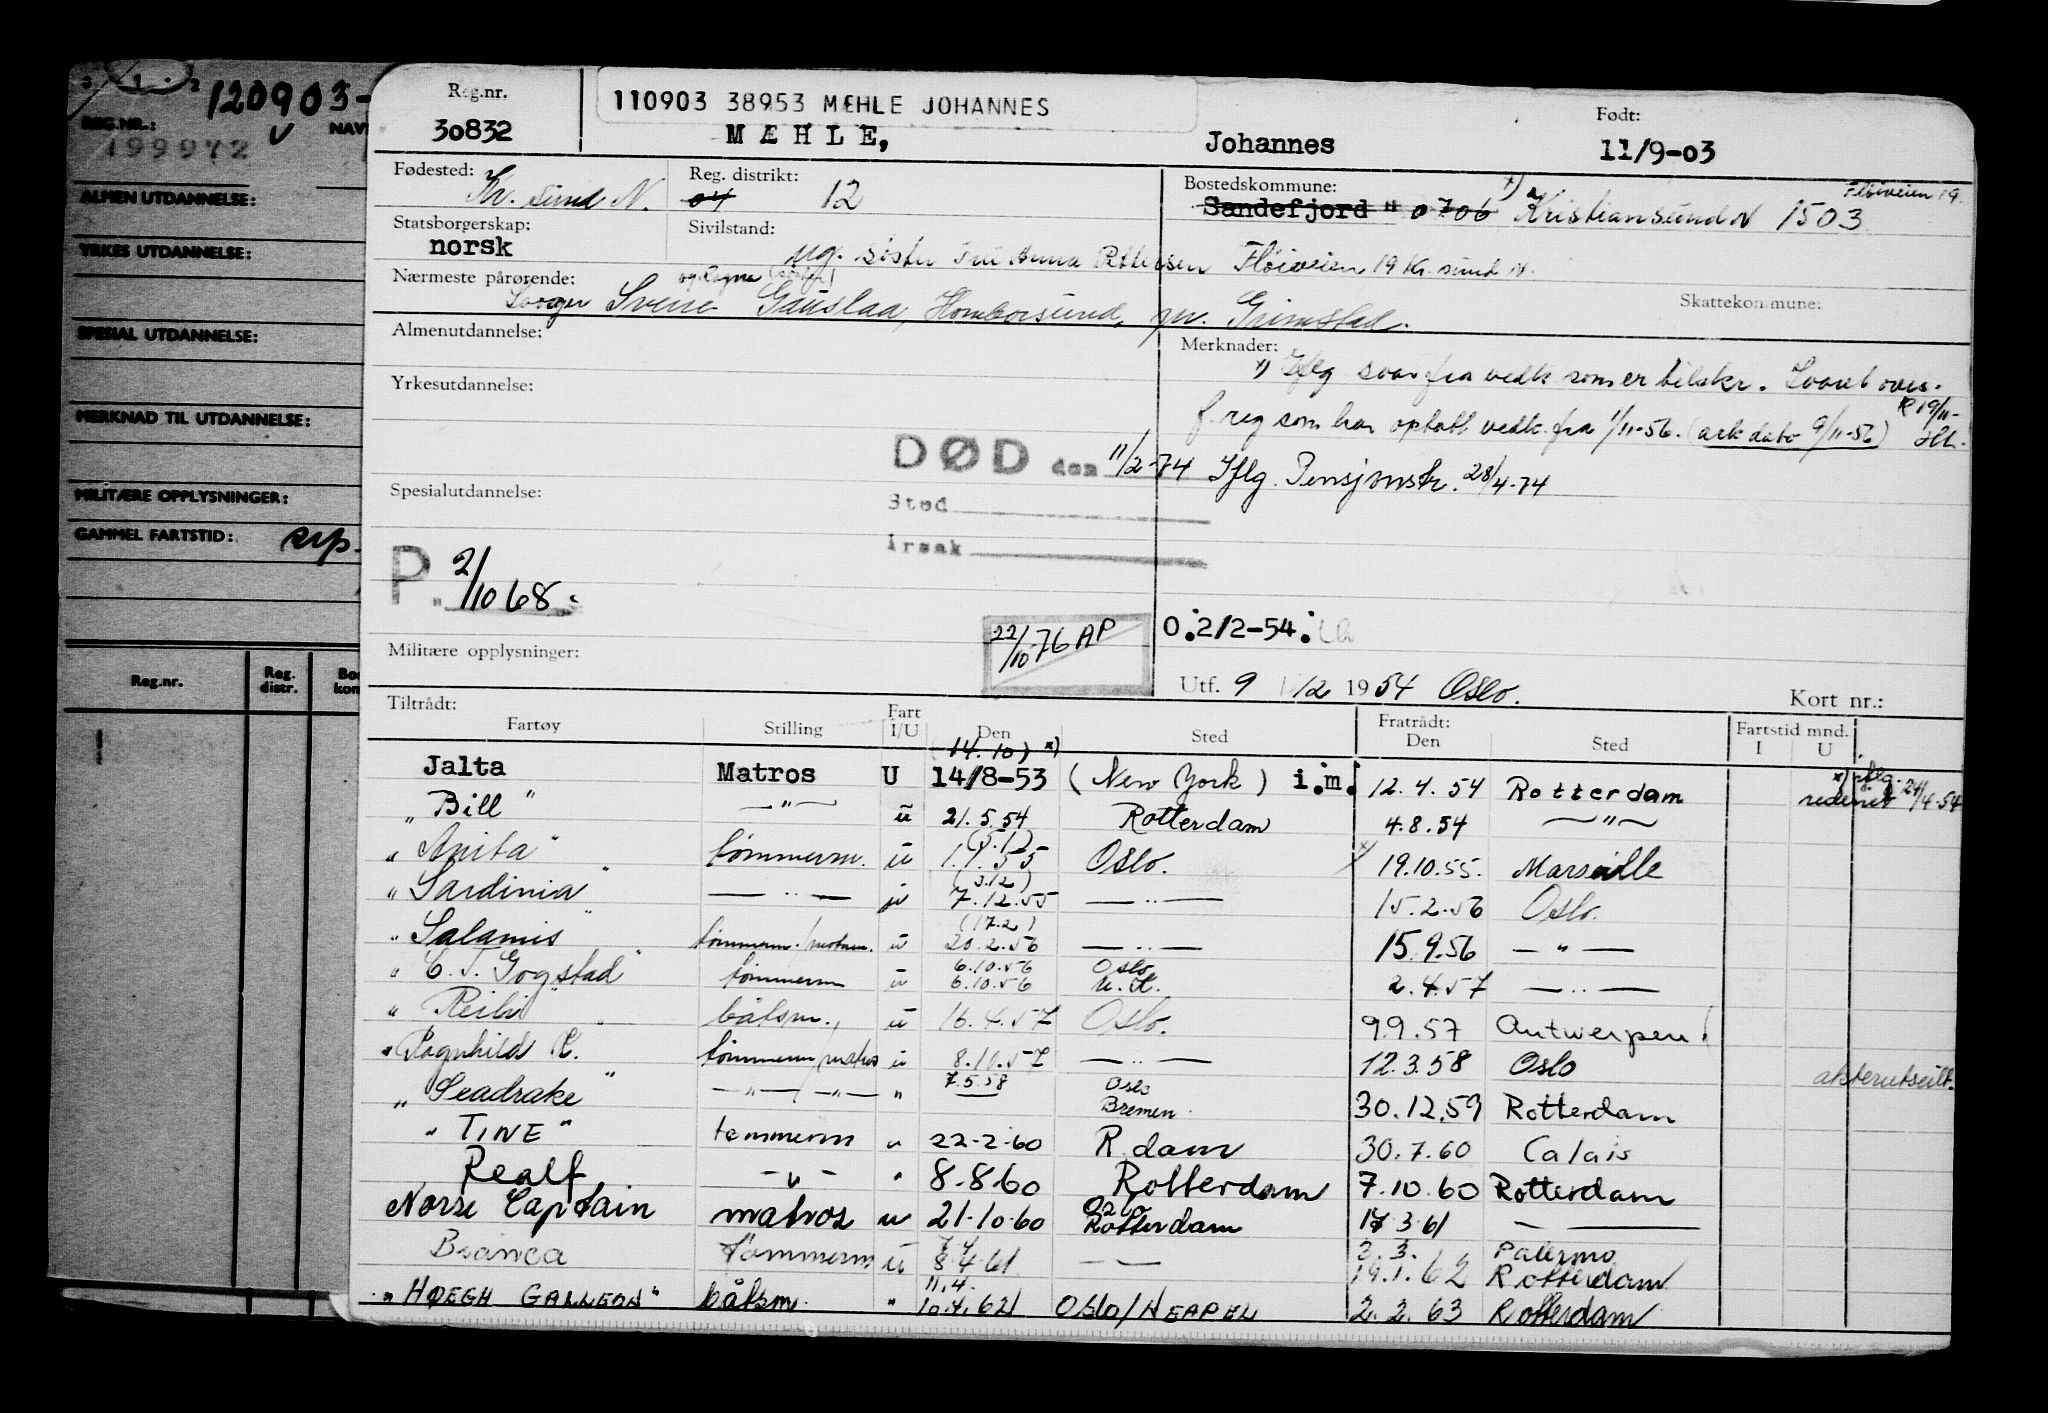 120903-
REG.NR.: NAV
199972
ALMEN UTDANNELSE:
YRKES UTDANNELSE:
SPESIAL UTDANNELSE:
MERKNAD TIL UTDANNELSE:
MILITÆRE OPPLYSNINGER:
GAMMEL FARTSTID:
Reg.nr. Reg. distr. Bos kon
Reg.nr. 30832
110903 38953 MÆHLE JOHANNES
MÆHLE, Johannes
Født: 11/9-03
Fødested: Kr. sund N. Reg. distrikt: 04 12
Bostedskommune: Sandefjord " 0706 x) Kristiansund N 1503 Fløiveien 19.
Statsborgerskap: norsk Sivilstand: ug. søster fru Anna Pettersen Fløiveien 19 Kr. sund N.
Nærmeste pårørende: Svoger Sverre og Ragna (søster) Gauslaa, Homborsund, pr. Grimstad.
Skattekommune:
Almenutdannelse:
Merknader:
x) Iflg svar fra vedk som er bilskr. Svaret overs.
f. reg som har opholt vedk. fra 1/11-56. (ark dato 9/11-56) R 19/11-
Yrkesutdannelse:
DØD den 11/2-74 Iflg. Pensjonstr. 28/4-74
Sted
Årsak
Spesialutdannelse:
P. 2/10 68.
22/10-76 AP
O.2/2-54.
Militære opplysninger:
Utf. 9 12 1954 Oslo. Kort nr.:
Tiltrådt: Fartøy Stilling Fart I/U Den Sted Fratrådt: Den Sted Fartstid mnd. I U
(14.10) x)
Jalta Matros U 14/8-53 (New York) i.m. 12.4.54 Rotterdam x) iflg. rederiet 24/4-54
"Bill" —"— u 21.5.54 Rotterdam 4.8.54 —"—
"Anita" tømmerm. u (5.1) 1.1.55 Oslo. x 19.10.55. Marseille
"Sardinia" —"— u (3.12) 7.12.55 —"— 15.2.56 Oslo.
"Salamis" tømmerm./matr. u (17.2) 20.2.56 —"— 15.9.56 —"—
"C. T. Gogstad" tømmerm u 6.10.56 6.10.56 Oslo U.K. 2.4.57 —"—
"Reilu" båtsm. u 16.4.57 Oslo. 9.9.57 Antwerpen
"Ragnhild B." tømmerm/matros u 8.11.57 —"— 12.3.58 Oslo
"Seadrake" —"— —"— " 7.5.58 Oslo Bremen. 30.12.59 Rotterdam akterutseilt.
"TINE" tømmerm u 22-2-60 R.dam 30.7.60 Calais
Realf —"— " 8.8.60 Rotterdam 7.10.60 Rotterdam
Norse Captain matros u 21-10-60 Oslo Rotterdam 17 3 61 —
Bianca tømmerm u 7.4 8.4.61 —"— 3.3. 19.1.62 Palermo Rotterdam
"HØEGH GALLEON" båtsm. " 11.4. 10.4.62 OSLO/NEAPEL 2.2.63 Rotterdam